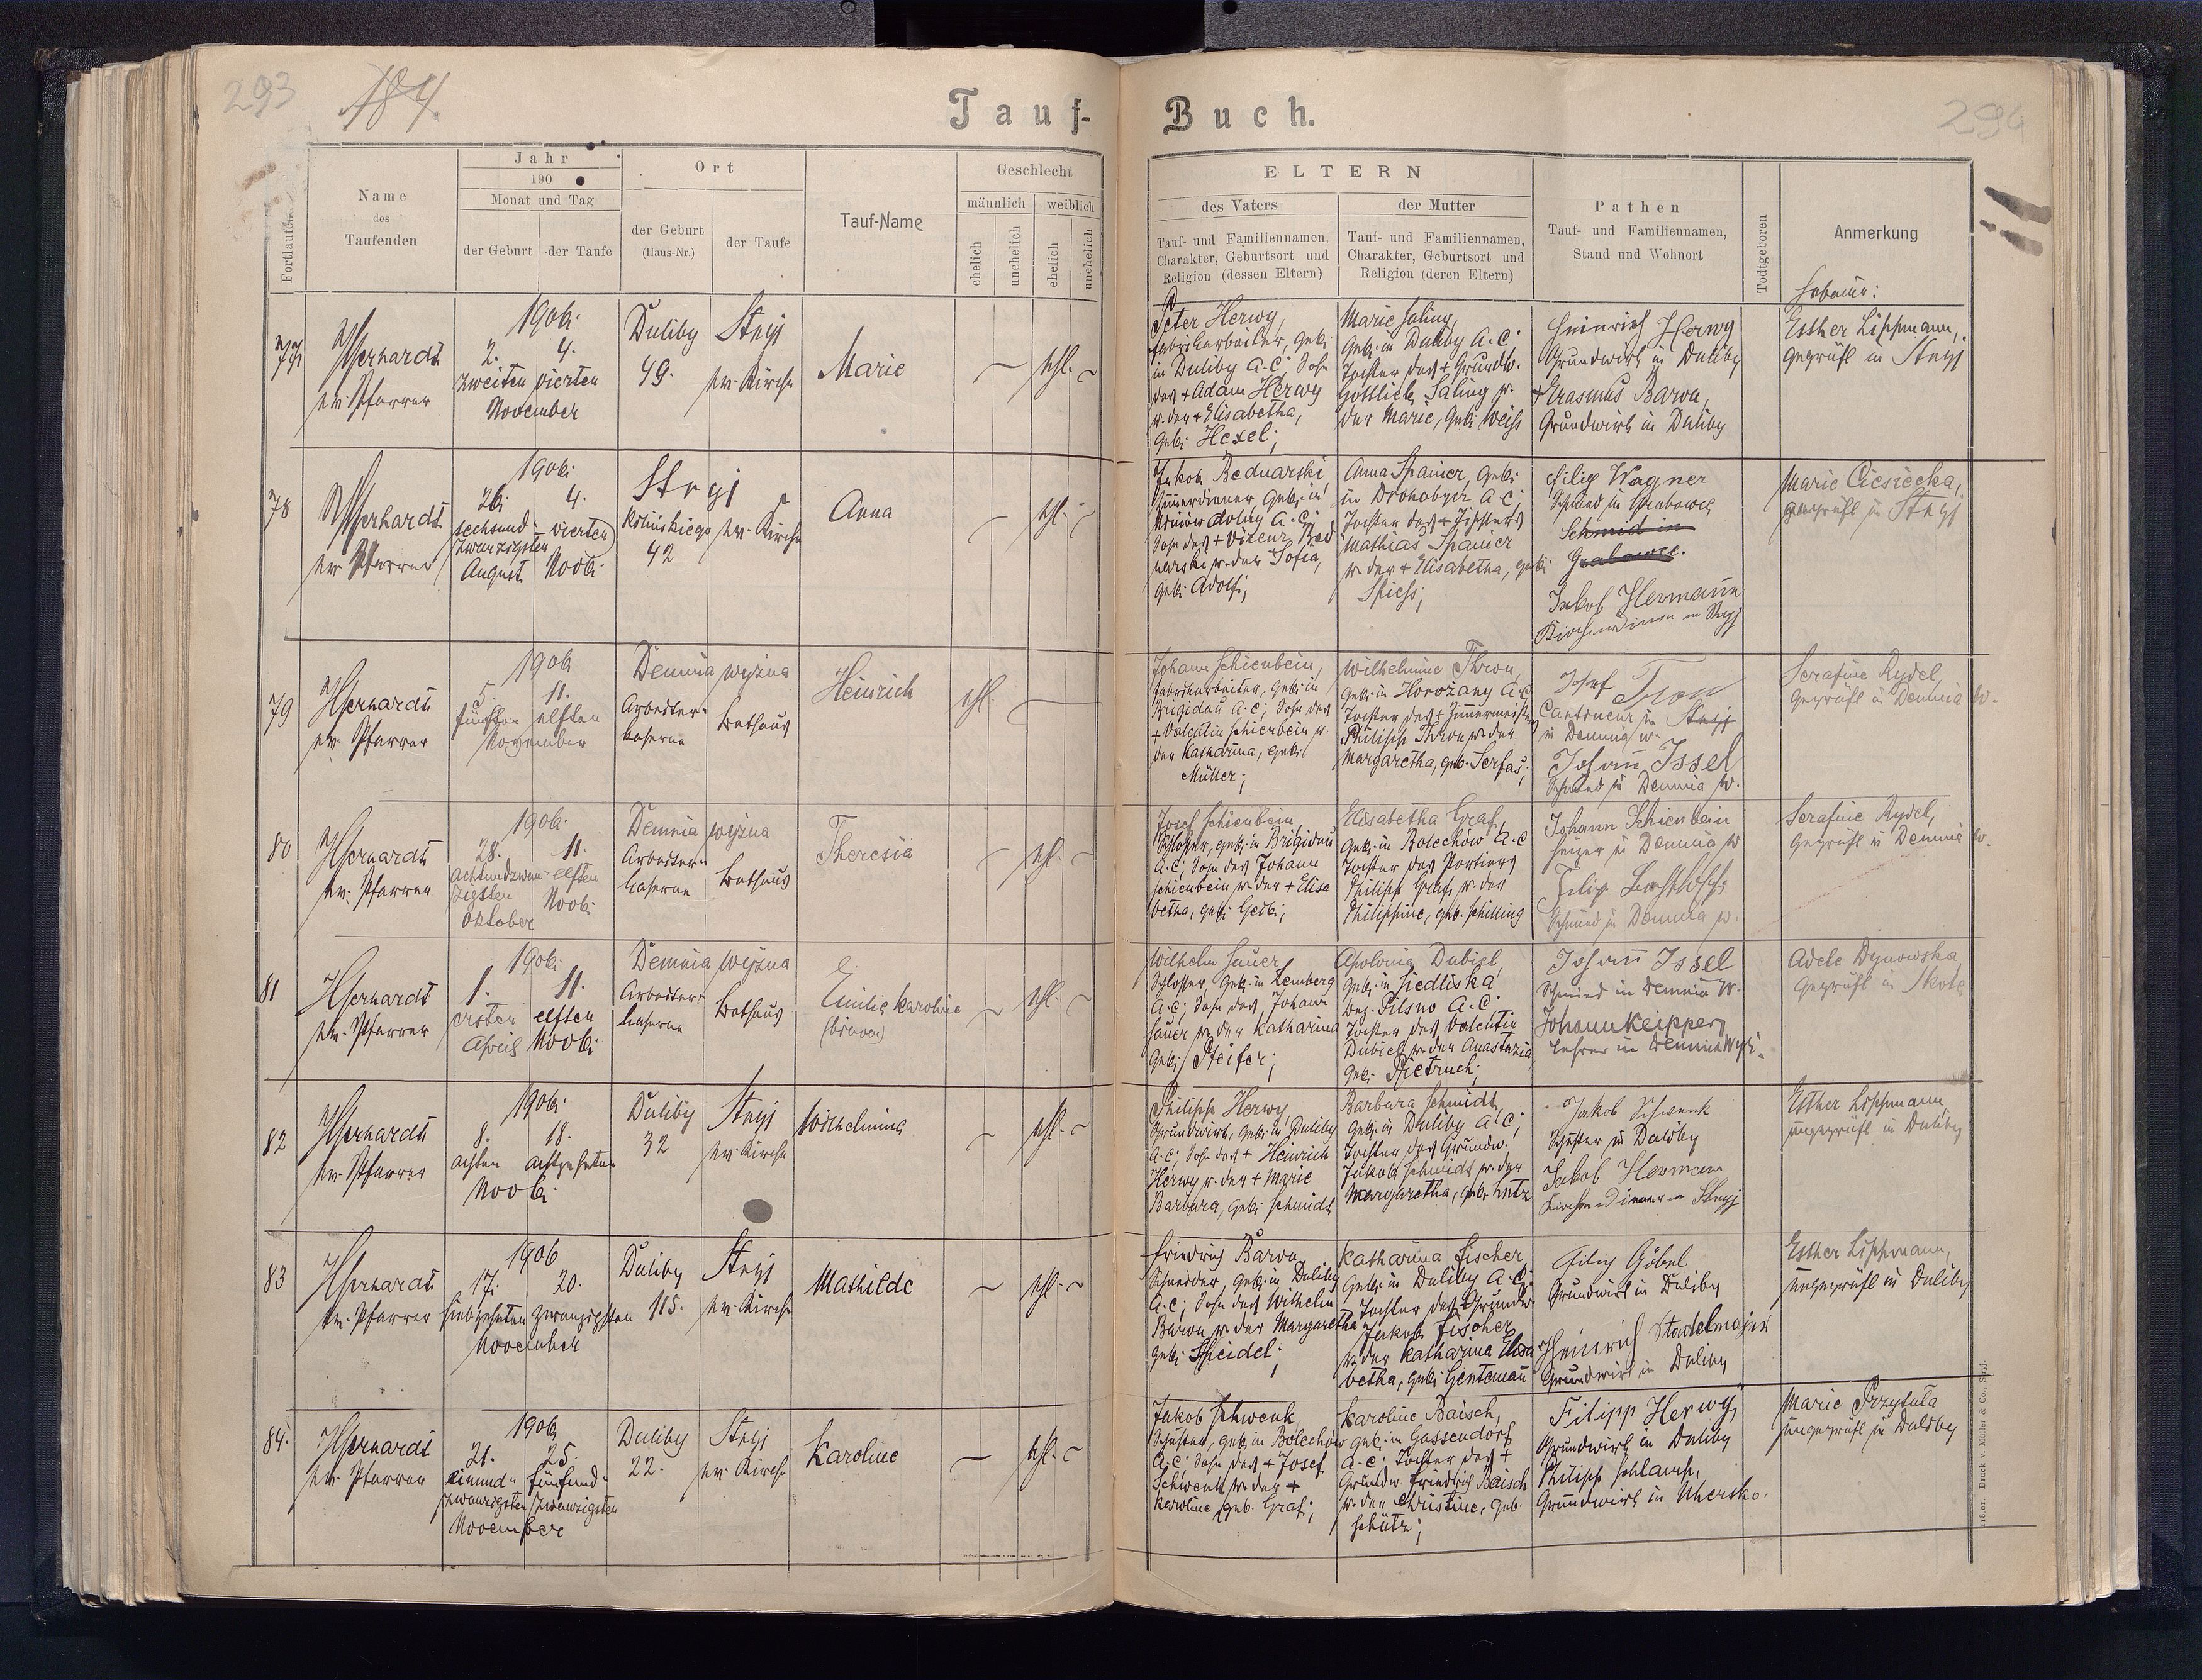 293
184.
294
Tauf-Buch.
Fortlaufende
Name
des
Taufenden
Jahr
190
Monat und Tag
der Geburt
der Taufe
Ort
der Geburt
(Haus-Nr.)
der Taufe
Tauf-Name
Geschlecht
männlich
weiblich
ehelich
unehelich
ehelich
unehelich
ELTERN
des Vaters
Tauf- und Familiennamen,
Charakter, Geburtsort und
Religion (dessen Eltern)
der Mutter
Tauf- und Familiennamen,
Charakter, Geburtsort und
Religion (deren Eltern)
Pathen
Tauf- und Familiennamen,
Stand und Wohnort
Todtgeboren
Anmerkung
Hebame:
77
ev. Pfarrer
1906.
2. 4.
zweiten vierten
November
Duliby
49.
Stryj
ev. Kirche
Marie
ehl.
Peter Herwy,
Fabrikarbeiter, geb.
in Duliby A.C; Sohn
des + Adam Herwy
u. der + Elisabetha,
geb. Hexel;
Marie Saling,
geb. in Duliby A.C;
Tochter des + Grundw.
Gottlieb Saling u.
der Marie, geb. Weiss
Heinrich Herwy
Grundwirth in Duliby
+ Erasmus Baron,
Grundwirth in Duliby
Esther Lippmann,
geprüft in Stryj
78
ev. Pfarrer
1906.
26. 4.
sechsund- vierten
zwanzigsten
August Novb.
Stryj
42
ev. Kirche
Anna
ehl.
Jakob Bednarski
A.C;
Sohn des + Vicenz Bed
narski u. der Sofia,
geb. Adolf;
Anna Spanier, geb.
in Drohobycz A.C;
Tochter des + Tischlers
Mathias Spanier
u. der + Elisabetha, geb.
Spiess;
Filip Wagner
Schmied in Grabowce
Schmid in
Grabowce.
Jakob Hermann
Kirchendiener in Stryj
Marie Ciesiecka,
geprüft in Stryj
79
ev. Pfarrer
1906
5. 11.
fünften elften
November
Demnia wyżna
Arbeiter-
kaserne
Bethaus
Heinrich
ehl.
Johann Schienbein,
Fabrikarbeiter, geb. in
Brigidau A.C; Sohn des
+ Valentin Schienbein u.
der Katharina, geb.
Müller;
Wilhelmine Thron,
geb. in Horożany A.C.
Tochter des + Zimmermeisters
Philipp Thron u. der
Margaretha, geb. Serfas;
Josef Tron
Cantineur in Stryj
in Demnia w.
Johann Issel
Schmied in Demnia w.
Serafine Rydel,
geprüft in Demnia w.
80
ev. Pfarrer
1906.
28. 11.
achtundzwan- elften
zigsten Novb.
Oktober
Demnia wyżna
Arbeiter-
kaserne
Bethaus
Theresia
ehl.
Josef Schienbein,
Schlosser, geb. in Brigidau
A.C; Sohn des Johann
Schienbein u. der + Elisa
betha, geb. Geib;
Elisabetha Graf,
geb. in Bolechow A.C
Tochter des Portiers
Philipp Graf, u. der
Philippine, geb. Schilling
Johann Schienbein
Heizer in Demnia w
Filip
Schmied in Demnia w.
Serafine Rydel,
geprüft in Demnia w.
81
ev. Pfarrer
1906.
1. 11.
ersten elften
April Novb.
Demnia wyżna
Arbeiter-
kaserne
Bethaus
Emilie Karoline
Wilhelm Sauer,
Schlosser, geb. in Lemberg
A.C; Sohn des Johann
Sauer u. der Katharina
geb. Pfeifer;
Apolonia Dubiel
geb. in Siedliska
Bez. Pilsno A.C;
Tochter des Valentin
Dubiel u. der Anastazia,
geb. Pietruch;
Johann Issel
Schmied in Demnia w.
Johann Keipper,
Lehrer in Demnia wyż.
Adele Dynowska,
geprüft in Skole
82
ev. Pfarrer
1906.
8. 18.
achten achtzehnten
Novb.
Duliby
32
Stryj
ev. Kirche
Wilhelmina
ehl.
Philipp Herwy,
Grundwirth, geb. in Duliby
A.C; Sohn des + Heinrich
Herwy u. der + Marie
Barbara, geb. Schmidt
Barbara Schmidt,
geb. in Duliby A.C;
Tochter des Grundw.
Jakob Schmidt u. der
Margaretha, geb. Lutz
Jakob Schwenk
Schuster in Duliby
Jakob Hermann
Kirchendiener in Stryj
Esther Lippmann,
ungeprüft in Duliby
83
ev. Pfarrer
1906
17. 20.
siebzehnten zwanzigsten
November
Duliby
115.
Stryj
ev. Kirche
Mathilde
ehl.
Friedrich Baron,
Schneider, geb. in Duliby
A.C; Sohn des Wilhelm
Baron u. der Margaretha
geb. Speidel;
Katharina Fischer,
geb. in Duliby A.C;
Tochter des Grundw.
Jakob Fischer
u. der Katharina Elisa
betha, geb. Gentemann
Filip Göbel
Grundwirt in Duliby
Heinrich Stadelmajer
Grundwirt in Duliby
Esther Lippmann,
ungeprüft in Duliby
84.
ev. Pfarrer
1906
21. 25.
einund- fünfund-
zwanzigsten zwanzigsten
November
Duliby
22.
Stryj
ev. Kirche
Karoline
ehl.
Jakob Schwenk,
Schuster, geb. in Bolechów
A.C; Sohn des + Josef
Schwenk u. der +
Karoline, geb. Graf;
Karoline Baisch,
geb. in Gassendorf
A.C; Tochter des +
Grundw. Friedrich Baisch
u. der Christine, geb.
Schütz;
Filipp Herwy,
Grundwirth in Duliby
Philipp Schlamp,
Grundwirth in Uhersko.
Marie Przytuła
ungeprüft in Duliby
118.01. Druck v. Müller & Co., Stryj.